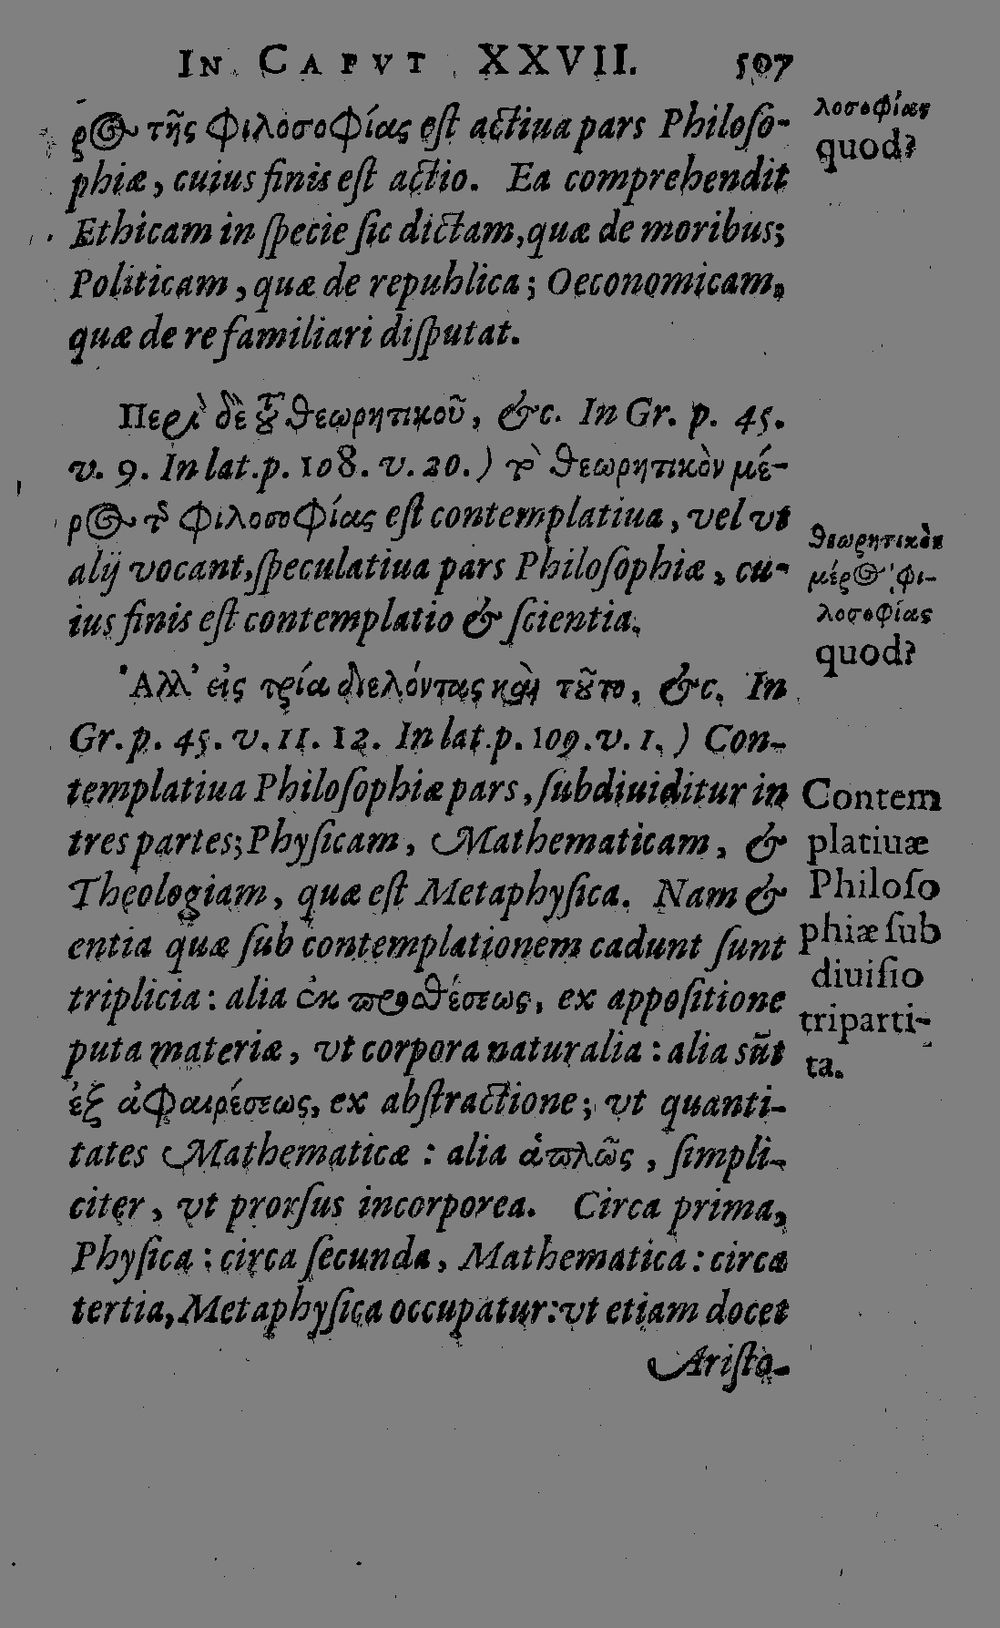 IN CAPVT XXVII. 507
ρος τῆς φιλοσοφίας eſt actiua pars Philoſo-
phiæ, cuius finis eſt actio. Ea comprehendit
Ethicam in ſpecie ſic dictam, quæ de moribus;
Politicam, quæ de republica; Oeconomicam,
quæ de re familiari diſputat.
Περὶ δὲ τοῦ θεωρητικοῦ, &c. In Gr. p. 45.
v. 9. In lat. p. 108. v. 20.) τὸ θεωρητικὸν μέ-
ρος τῆς φιλοσοφίας eſt contemplatiua, vel vt
alij vocant, ſpeculatiua pars Philoſophiæ, cu-
ius finis eſt contemplatio & ſcientia.
Ἀλλ' εἰς τρία διελόντας καὶ τοῦτο, &c. In
Gr. p. 45. v. 11. 12. In lat. p. 109. v. 1.) Con-
templatiua Philoſophiæ pars, ſubdiuiditur in
tres partes; Phyſicam, Mathematicam, &
Theologiam, quæ eſt Metaphyſica. Nam &
entia quæ ſub contemplationem cadunt ſunt
triplicia: alia ἐκ προσθέσεως, ex appoſitione
puta materiæ, vt corpora naturalia: alia sũt
ἐξ ἀφαιρέσεως, ex abſtractione; vt quanti-
tates Mathematicæ: alia ἁπλῶς, ſimpli-
citer, vt prorſus incorporea. Circa prima,
Phyſica: circa ſecunda, Mathematica: circa
tertia, Metaphyſica occupatur: vt etiam docet
Ariſto-
λοσοφίας
quod?
θεωρητικὸν
μέρος φι-
λοσοφίας
quod?
Contem
platiuæ
Philoſo
phiæ ſub
diuiſio
triparti-
ta.